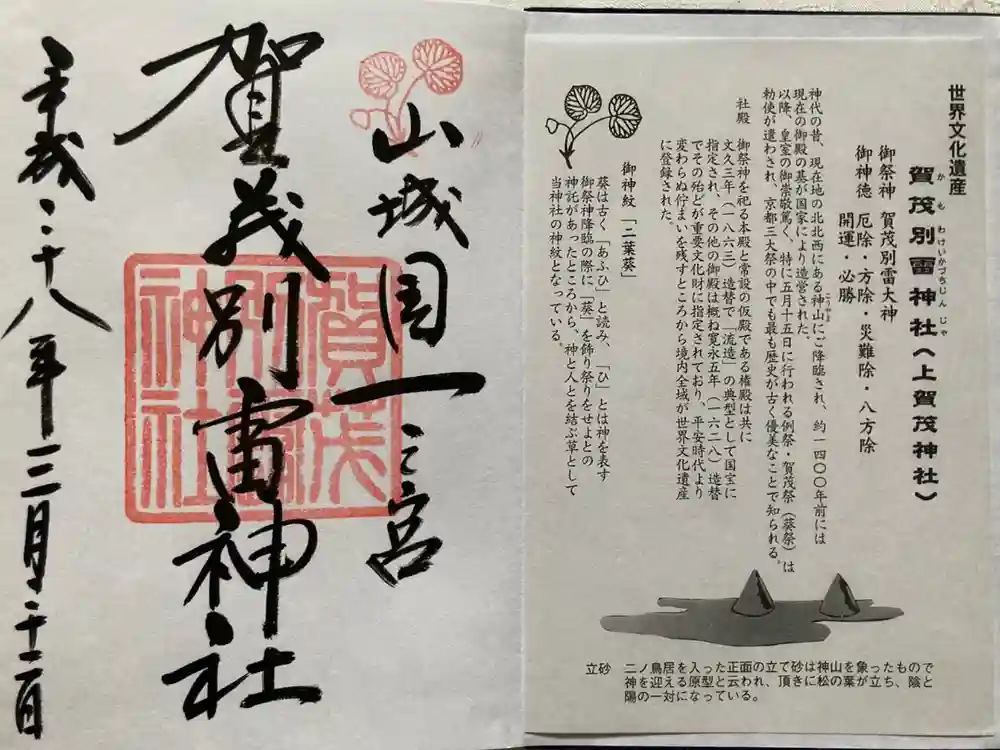 世界文化遺産
賀茂別雷神社(上賀茂神社)
かもわけいかづちじんじゃ
御祭神 賀茂別雷大神
御神徳 厄除・方除・災難除・八方除
開運・必勝
神代の昔、現在地の北北西にある神山にご降臨され、約一四〇〇年前には
こうやま
現在の御殿の基が国家により造営された。
以降、皇室の御崇敬篤く、特に五月十五日に行われる例祭・賀茂祭(葵祭)は
勅使が遣わされ、京都三大祭の中でも最も歴史が古く優美なことで知られる。
社殿 御祭神を祀る本殿と常設の仮殿である権殿は共に
文久三年(一八六三)造替で「流造」の典型として国宝に
指定され、その他の御殿は概ね寛永五年(一六二八)造替
でその殆どが重要文化財に指定されており、平安時代より
変わらぬ佇まいを残すところから境内全域が世界文化遺産
に登録された。
御神紋「二葉葵」
葵は古く「あふひ」と読み、「ひ」とは神を表す
御祭神降臨の際に「葵」を飾り祭りをせよとの
神託があったところから、神と人とを結ぶ草として
当神社の神紋となっている。
立砂 二ノ鳥居を入った正面の立て砂は神山を象ったもので
神を迎える原型と云われ、頂きに松の葉が立ち、陰と
陽の一対になっている。
山城国一之宮
賀茂別雷神社
賀茂
別雷
神社
平成二十八年三月二十二日